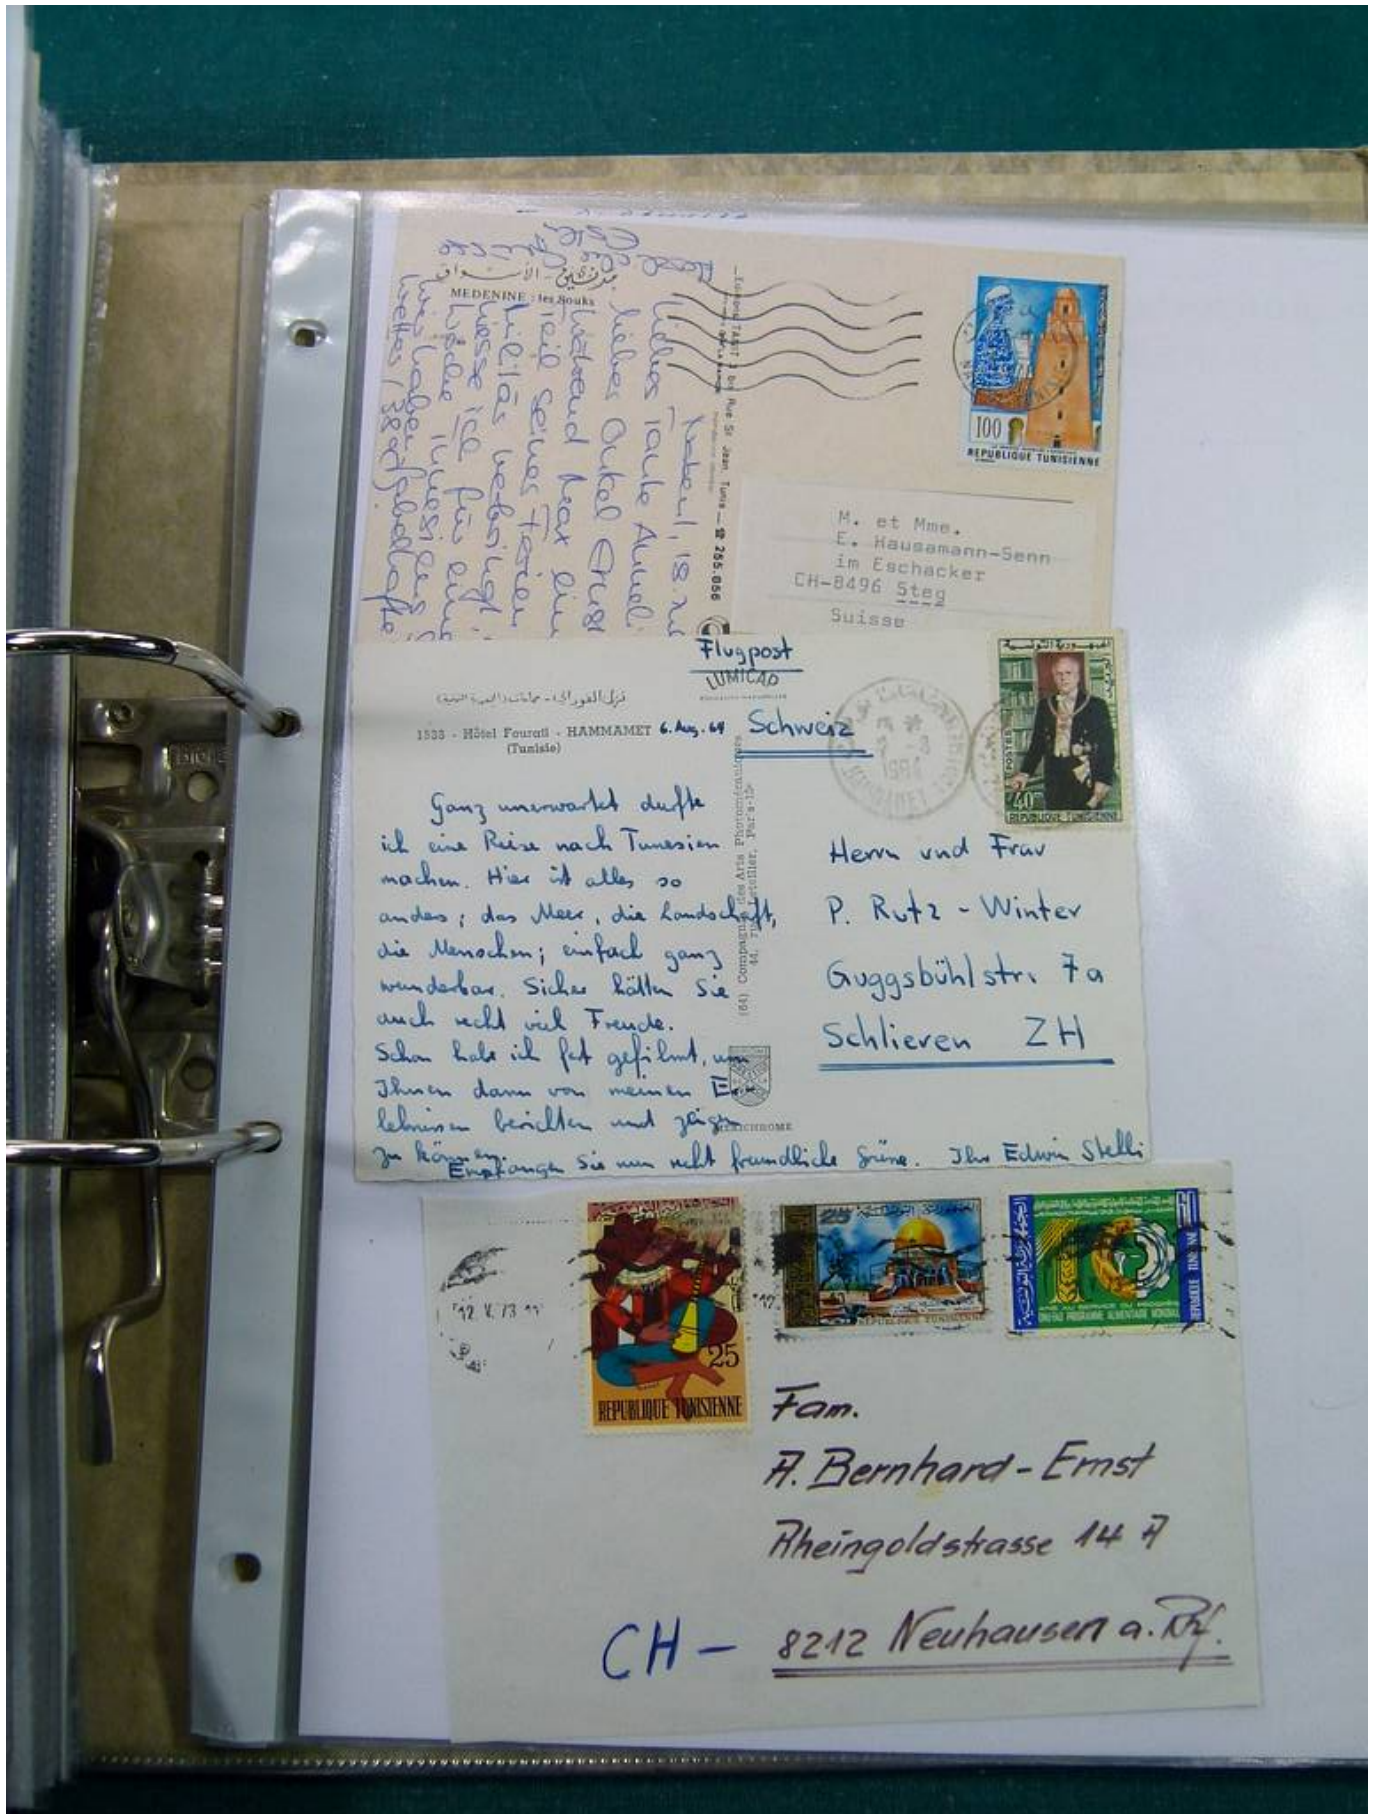 مدنين - الأسواق
MEDENINE : les Souks
liebes Tante Anneli
lieber Onkel Ernst
Während Max ein
Teil seiner Ferien
Militär verbringt,
für eine
Woche
wir haben
Rue St Jean. Tunis — ☎ 255.856
100
REPUBLIQUE TUNISIENNE
M. et Mme.
E. Hausamann-Senn
im Eschacker
CH-8496 Steg
Suisse
Flugpost
LUMICAP
1533 - Hôtel Fourati - HAMMAMET 6. Aug. 64
(Tunisie)
Schweiz
الجمهورية التونسية
POSTES
40m
REPUBLIQUE TUNISIENNE
Ganz unerwartet durfte
ich eine Reise nach Tunesien
machen. Hier ist alles so
anders; das Meer, die Landschaft,
die Menschen; einfach ganz
wunderbar. Sicher hätten Sie
auch recht viel Freude.
Schon habe ich fest gefilmt, um
Ihnen dann von meinen Er-
lebnissen berichten und zeigen
zu können.
Empfangen Sie nun recht freundliche Grüsse. Ihr Edwin Stelli
(64) Compagnie des Arts Photomécaniques
44, Paris-15e
Herrn und Frau
P. Rutz - Winter
Guggsbühlstr. 7a
Schlieren ZH
12. V. 73
25
REPUBLIQUE TUNISIENNE
25
REPUBLIQUE TUNISIENNE
10
ANS AU SERVICE DU PROGRES
ONU-FAO PROGRAMME ALIMENTAIRE MONDIAL
REPUBLIQUE TUNISIENNE
Fam.
A. Bernhard-Ernst
Rheingoldstrasse 14 A
CH - 8212 Neuhausen a. Rhf.